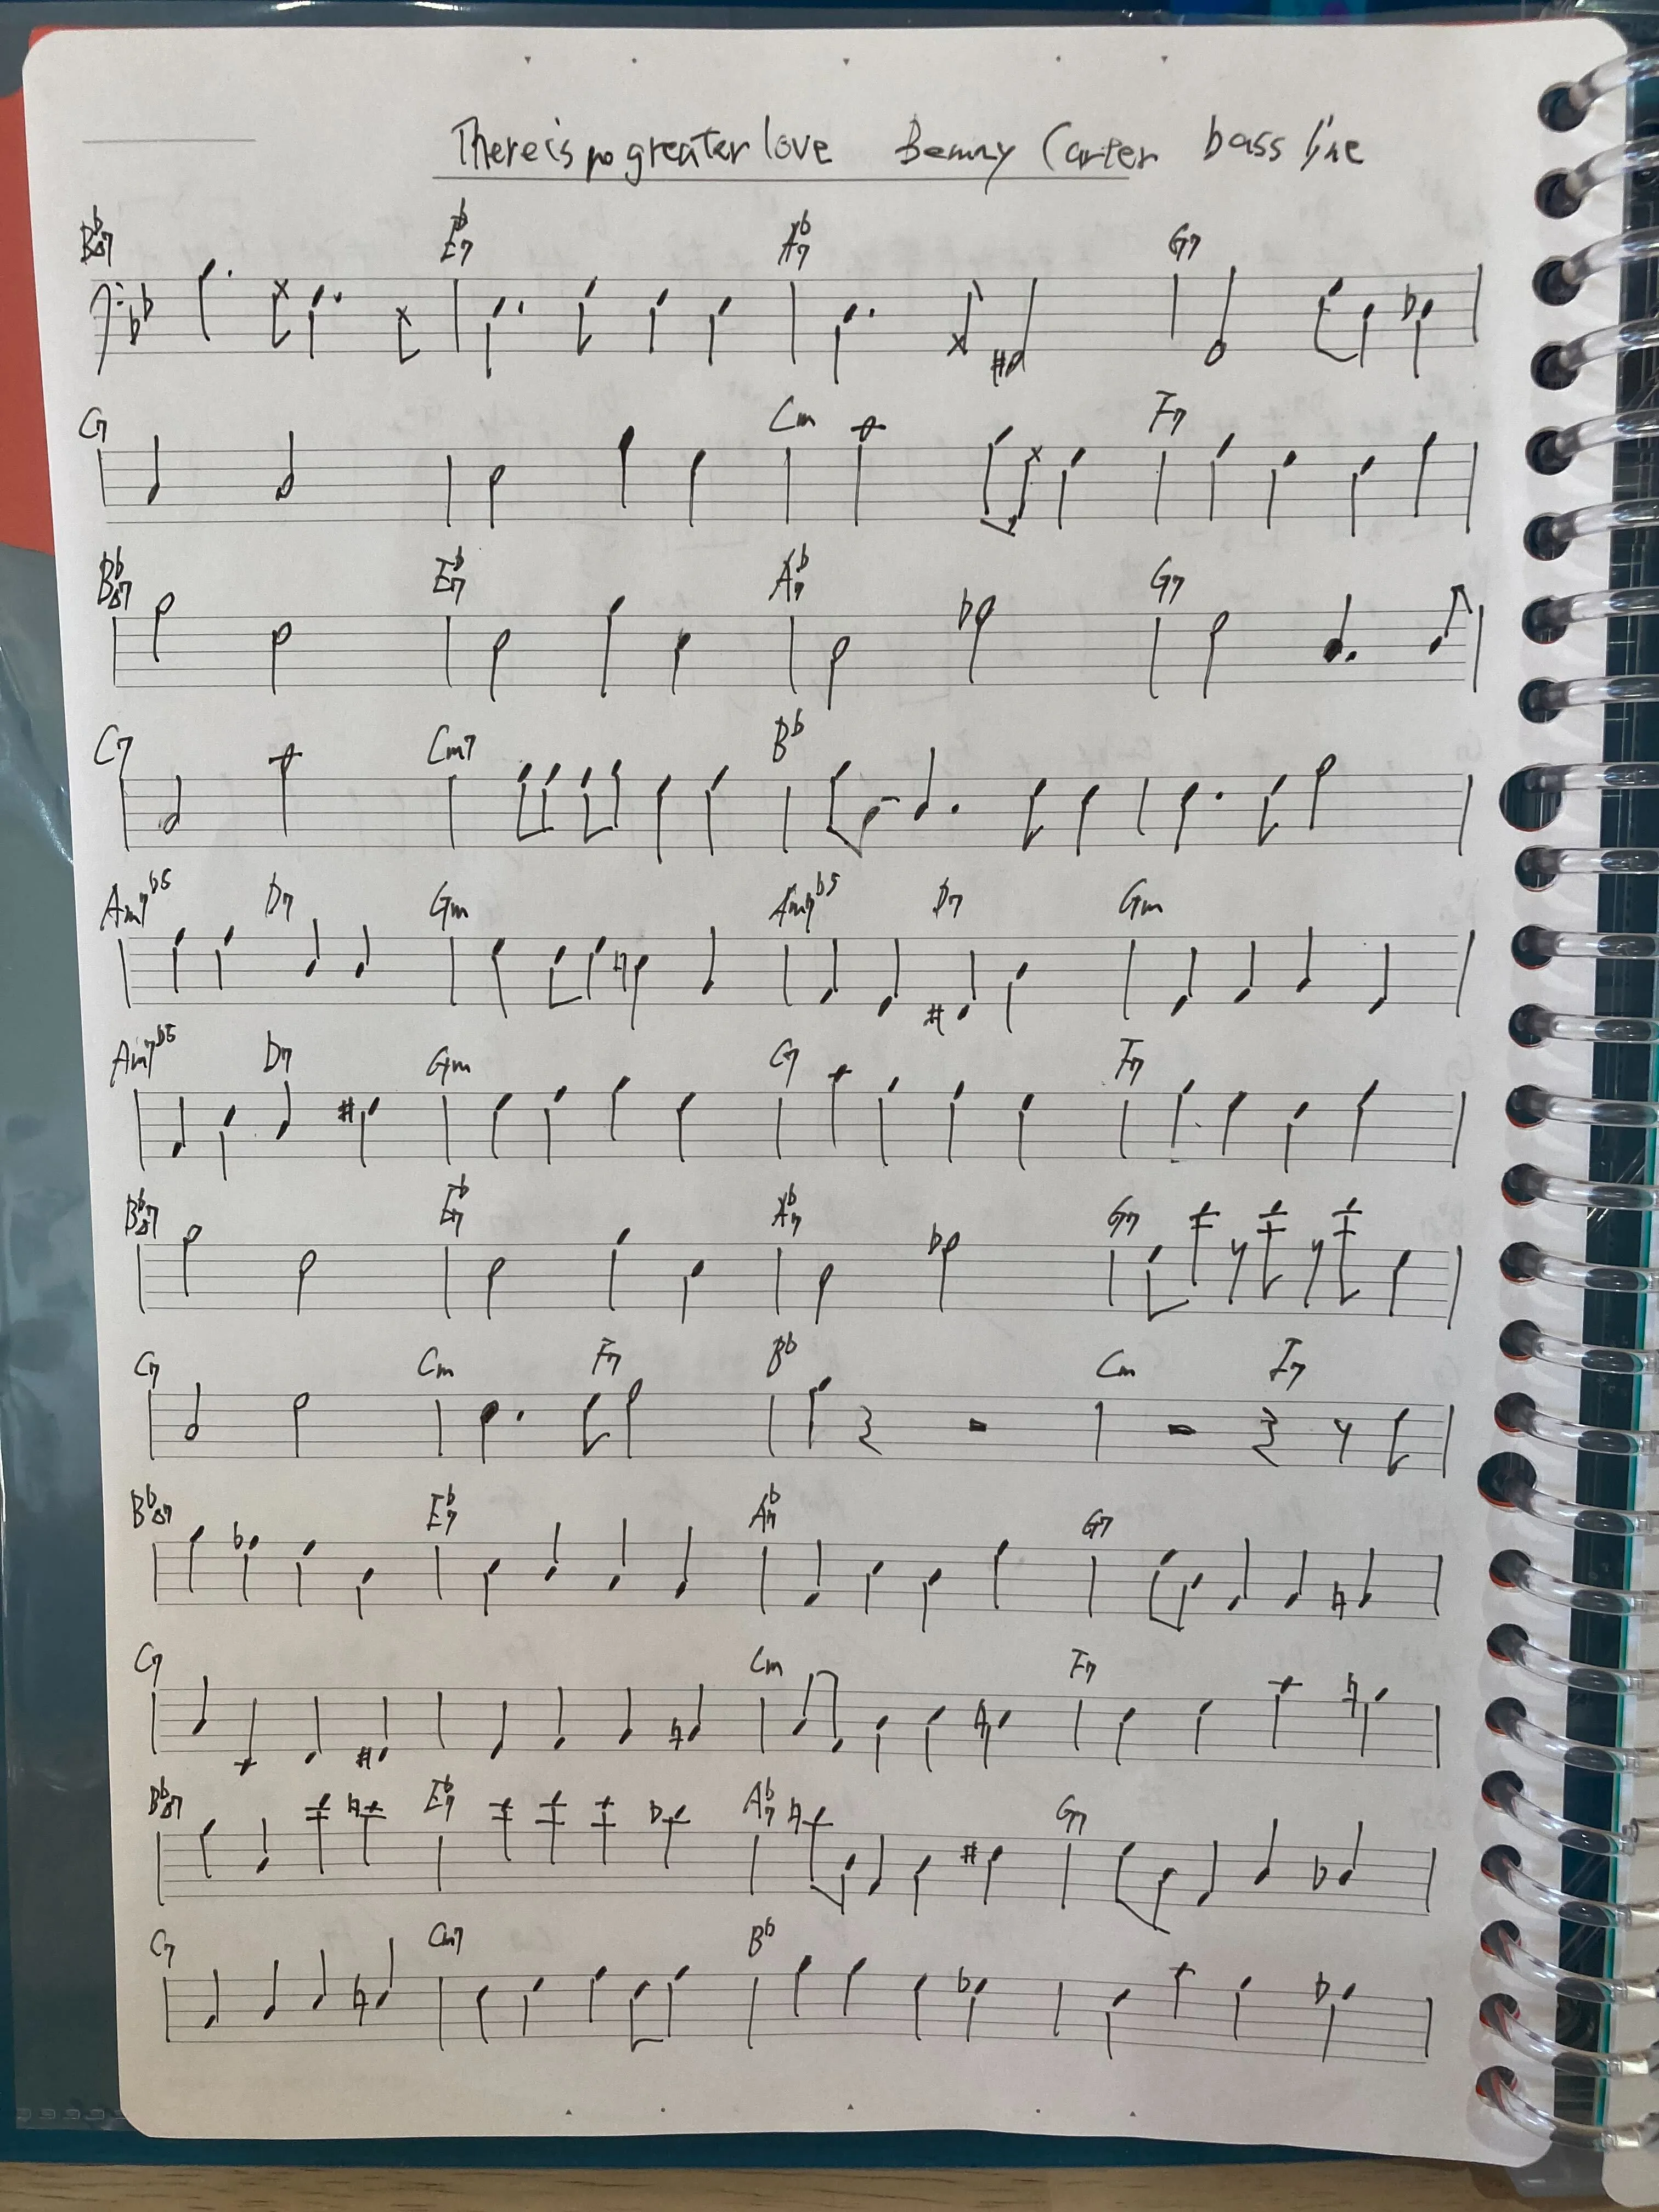 There is no greater love Benny Carter bass line
B♭△7 E♭7 A♭7 G7
C7 Cm F7
B♭△7 E♭7 A♭7 G7
C7 Cm7 B♭
Am7♭5 D7 Gm Am7♭5 D7 Gm
Am7♭5 D7 Gm C7 F7
B♭△7 E♭7 A♭7 G7
C7 Cm F7 B♭ Cm F7
B♭△7 E♭7 A♭7 G7
C7 Cm F7
B♭△7 E♭7 A♭7 G7
C7 Cm7 B♭